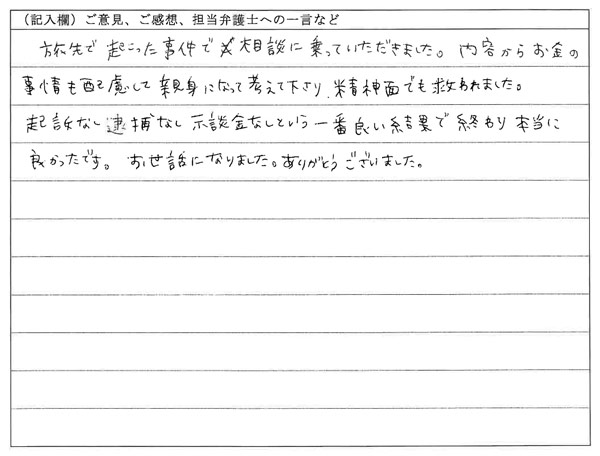 （記入欄）ご意見、ご感想、担当弁護士への一言など
旅先で起こった事件で相談に乗っていただきました。内容からお金の
事情も配慮して親身になって考えて下さり、精神面でも救われました。
起訴なし逮捕なし示談金なしという一番良い結果で終わり本当に
良かったです。お世話になりました。ありがとうございました。